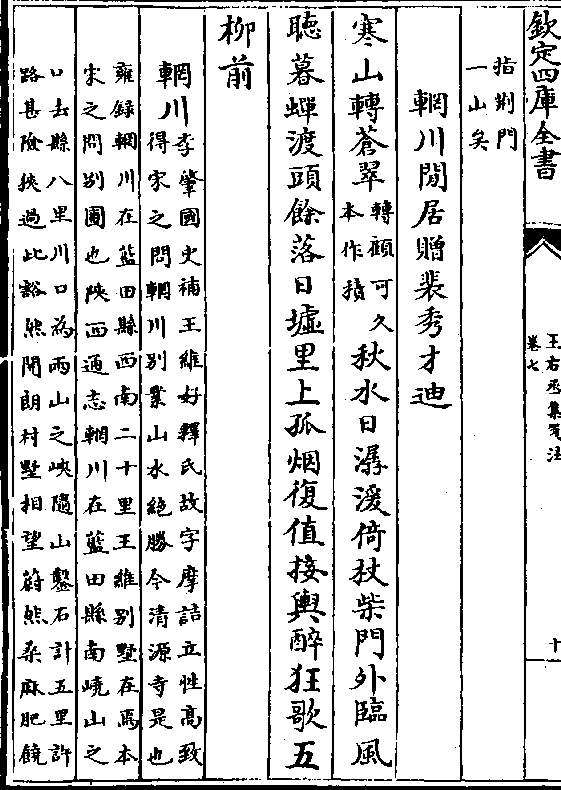 欽定四庫全書
王右丞集箋注
卷七
十
指荆門
一山矣
輞川閒居贈裴秀才迪
寒山轉蒼翠
轉顧可久
本作積
秋水日潺湲倚杖柴門外臨風
聽暮蟬渡頭餘落日墟里上孤烟復值接輿醉狂歌五
柳前
輞川
李肇國史補王維好釋氏故字摩詰立性高致
得宋之問輞川别業山水絶勝今清源寺是也
雍錄輞川在藍田縣西南二十里王維别墅在焉本
宋之問别圃也陜西通志輞川在藍田縣南嶢山之
口去縣八里川口為兩山之峽隨山鑿石計五里許
路甚險狹過此豁然開朗村墅相望蔚然桑麻肥饒